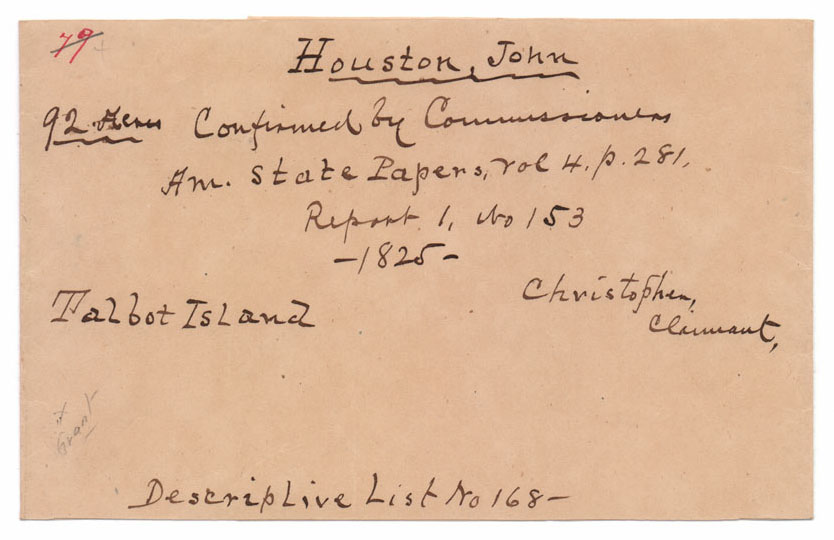 79
Houston, John
92 Acres Confirmed by Commissioners
Am. State Papers, vol 4. p. 281,
Report 1, No 153
-1825-
Christopher,
Talbot Island
Claimant,
Grant
Descriptive List No 168-